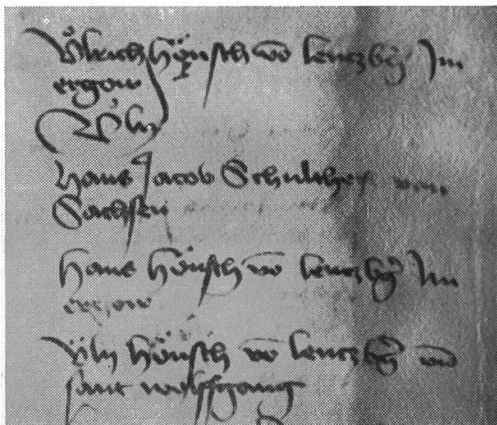 Ůlrich hönsch vō lentzbg Im
ergow
Ůly
Hans Jacob Schulthes von
Sachsen
hans hönsch vō lentzbg Im
ergow
Ůly hönsch vō lentzbg vō
sant wolffgang